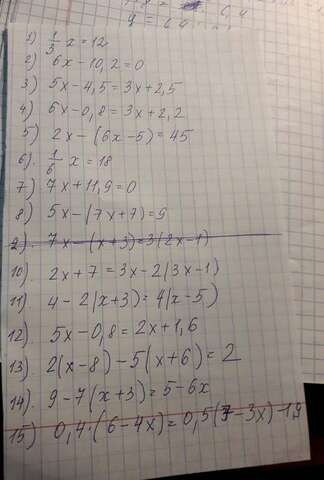 1) 1/3 x = 12
2) 6x - 10,2 = 0
3) 5x - 4,5 = 3x + 2,5
4) 6x - 0,8 = 3x + 2,2
5) 2x - (6x - 5) = 45
6). 1/6 x = 18
7) 7x + 11,9 = 0
8) 5x - (7x + 7) = 9
9). 7x - (x + 3) = 3(2x - 1)
10). 2x + 7 = 3x - 2(3x - 1)
11) 4 - 2(x + 3) = 4(x - 5)
12). 5x - 0,8 = 2x + 1,6
13). 2(x - 8) - 5(x + 6) = 2
14). 9 - 7(x + 3) = 5 - 6x
15) 0,4·(6 - 4x) = 0,5(7 - 3x) - 1,9